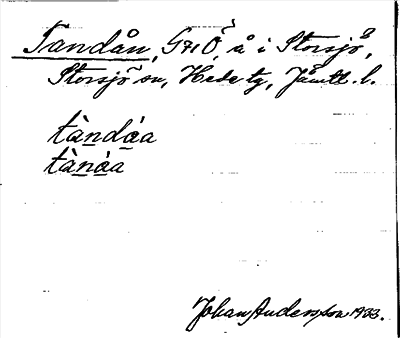 Tandån, G71Ö, å i Storsjö,
Storsjö sn, Hede tg, Jämtl. l.
tàndáa
tànáa
Johan Andersson 1933.